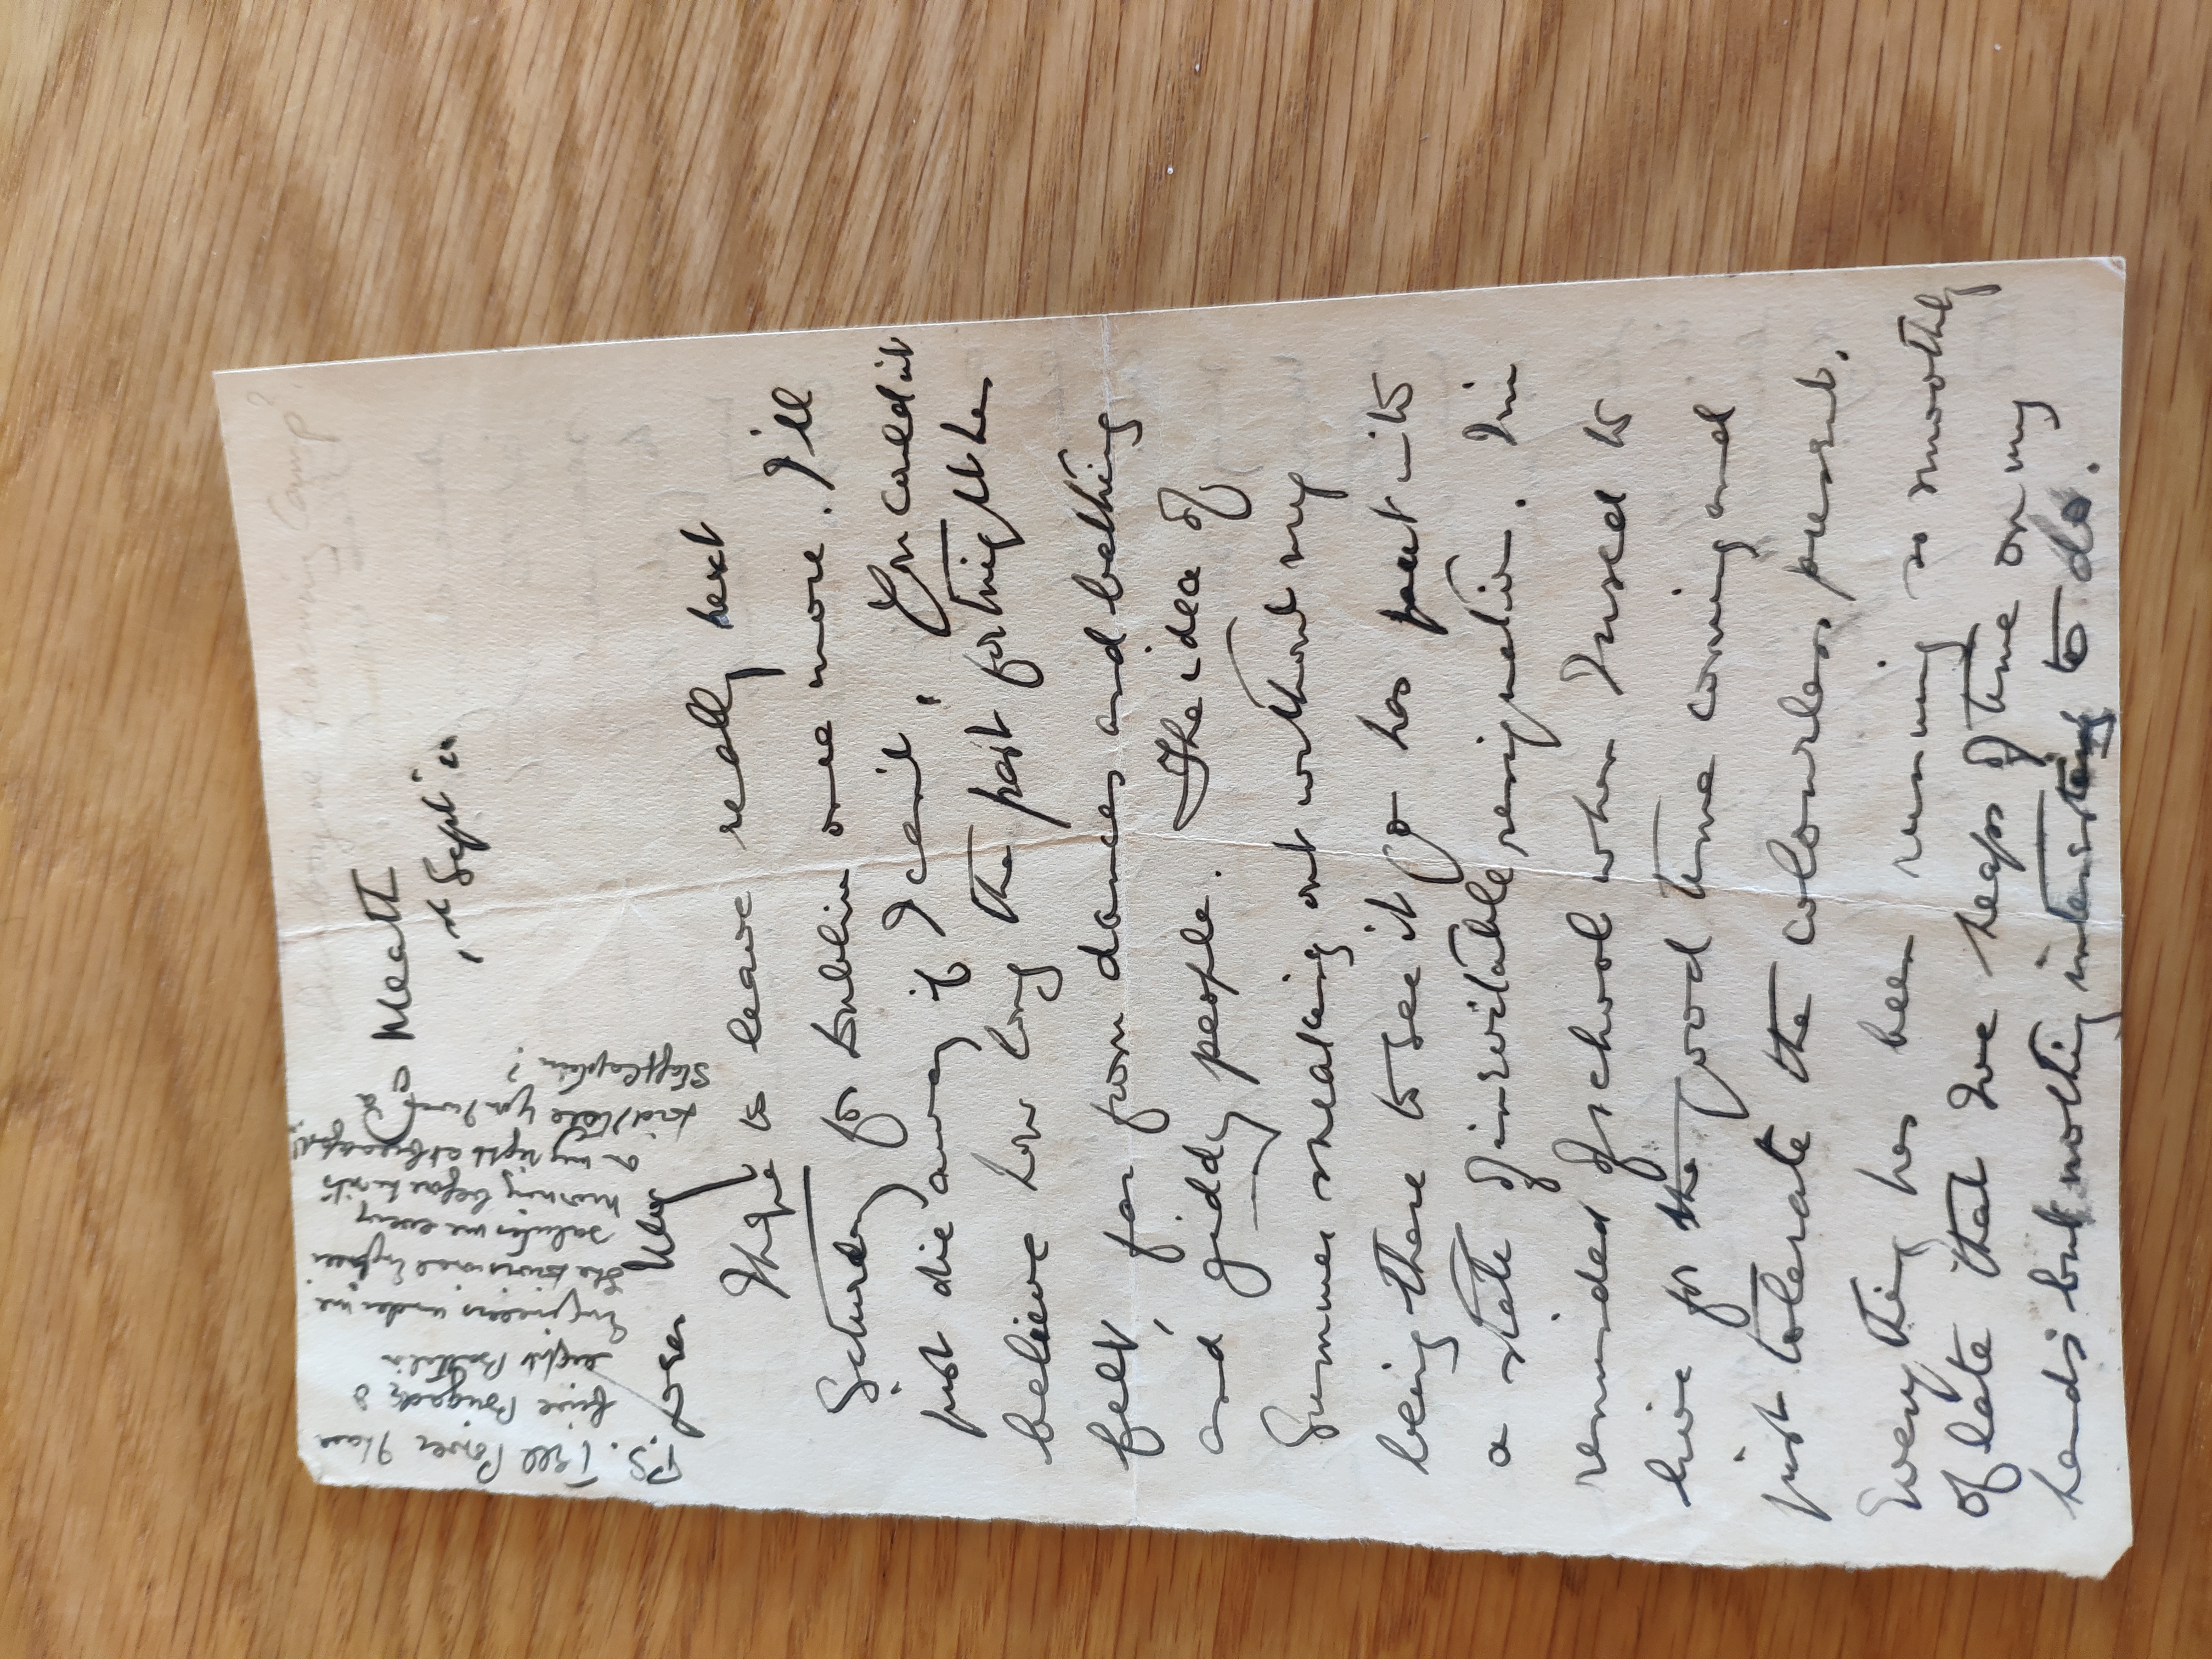 Co Meath
1st Sept
Dear May
I hope to leave really next
Saturday for Dublin once more. I'll
just die away if I can't. You couldn't
believe how long the past fortnight has
felt, far from dances and bathing
and giddy people. The idea of
Summer sneaking out without my
being there to see it go has put into
a state of inevitable resignation. I'm
reminded of school when I used to
live for the good time coming and
just tolerate the colourless present.
Everything has been running so smoothly
of late that I've heaps of time on my
hands but nothing interesting to do.
P.S. Tell Power I have
five Brigades &
eight Battalion
Engineers under me
The Divisional Engineer
salutes me every
morning before he sits
on my right at breakfast.
Staff Captain?
Training Camp